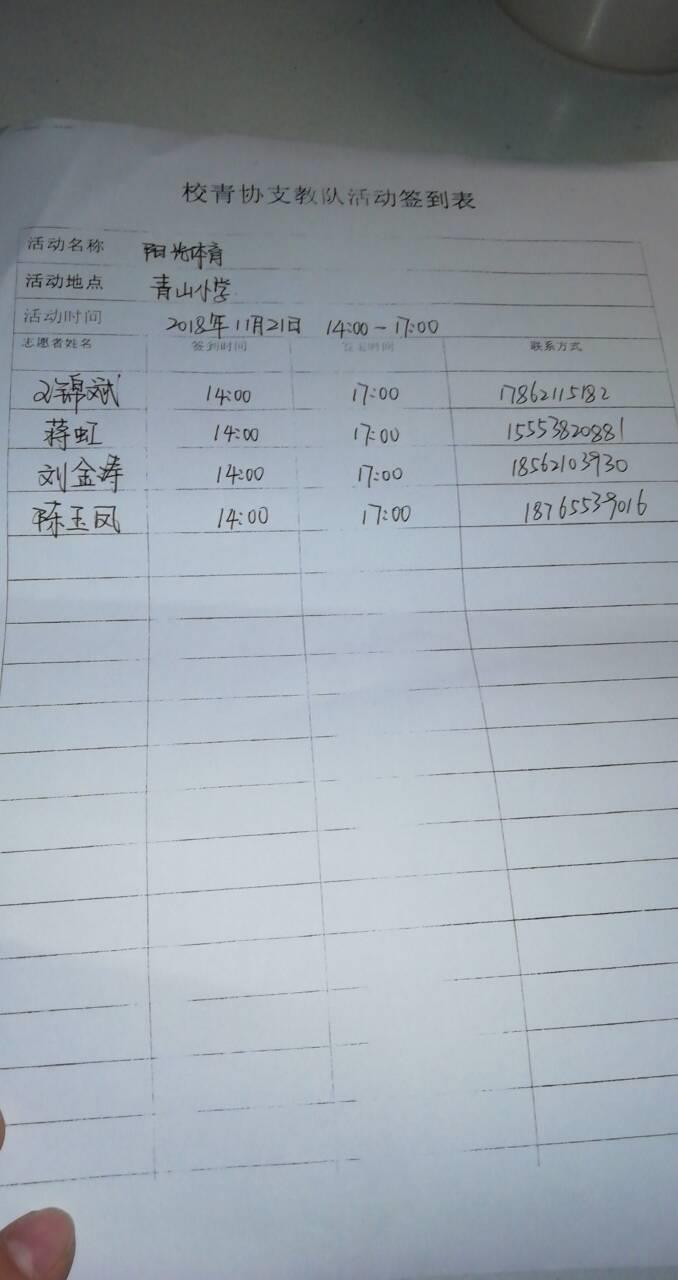 校青协支教队活动签到表
活动名称 阳光体育
活动地点 青山小学
活动时间 2018年11月21日 14:00-17:00
志愿者姓名 签到时间 签至时间 联系方式
刘锦斌 14:00 17:00 17862115182
蒋虹 14:00 17:00 15553820881
刘金涛 14:00 17:00 18562103930
陈玉凤 14:00 17:00 18765539016